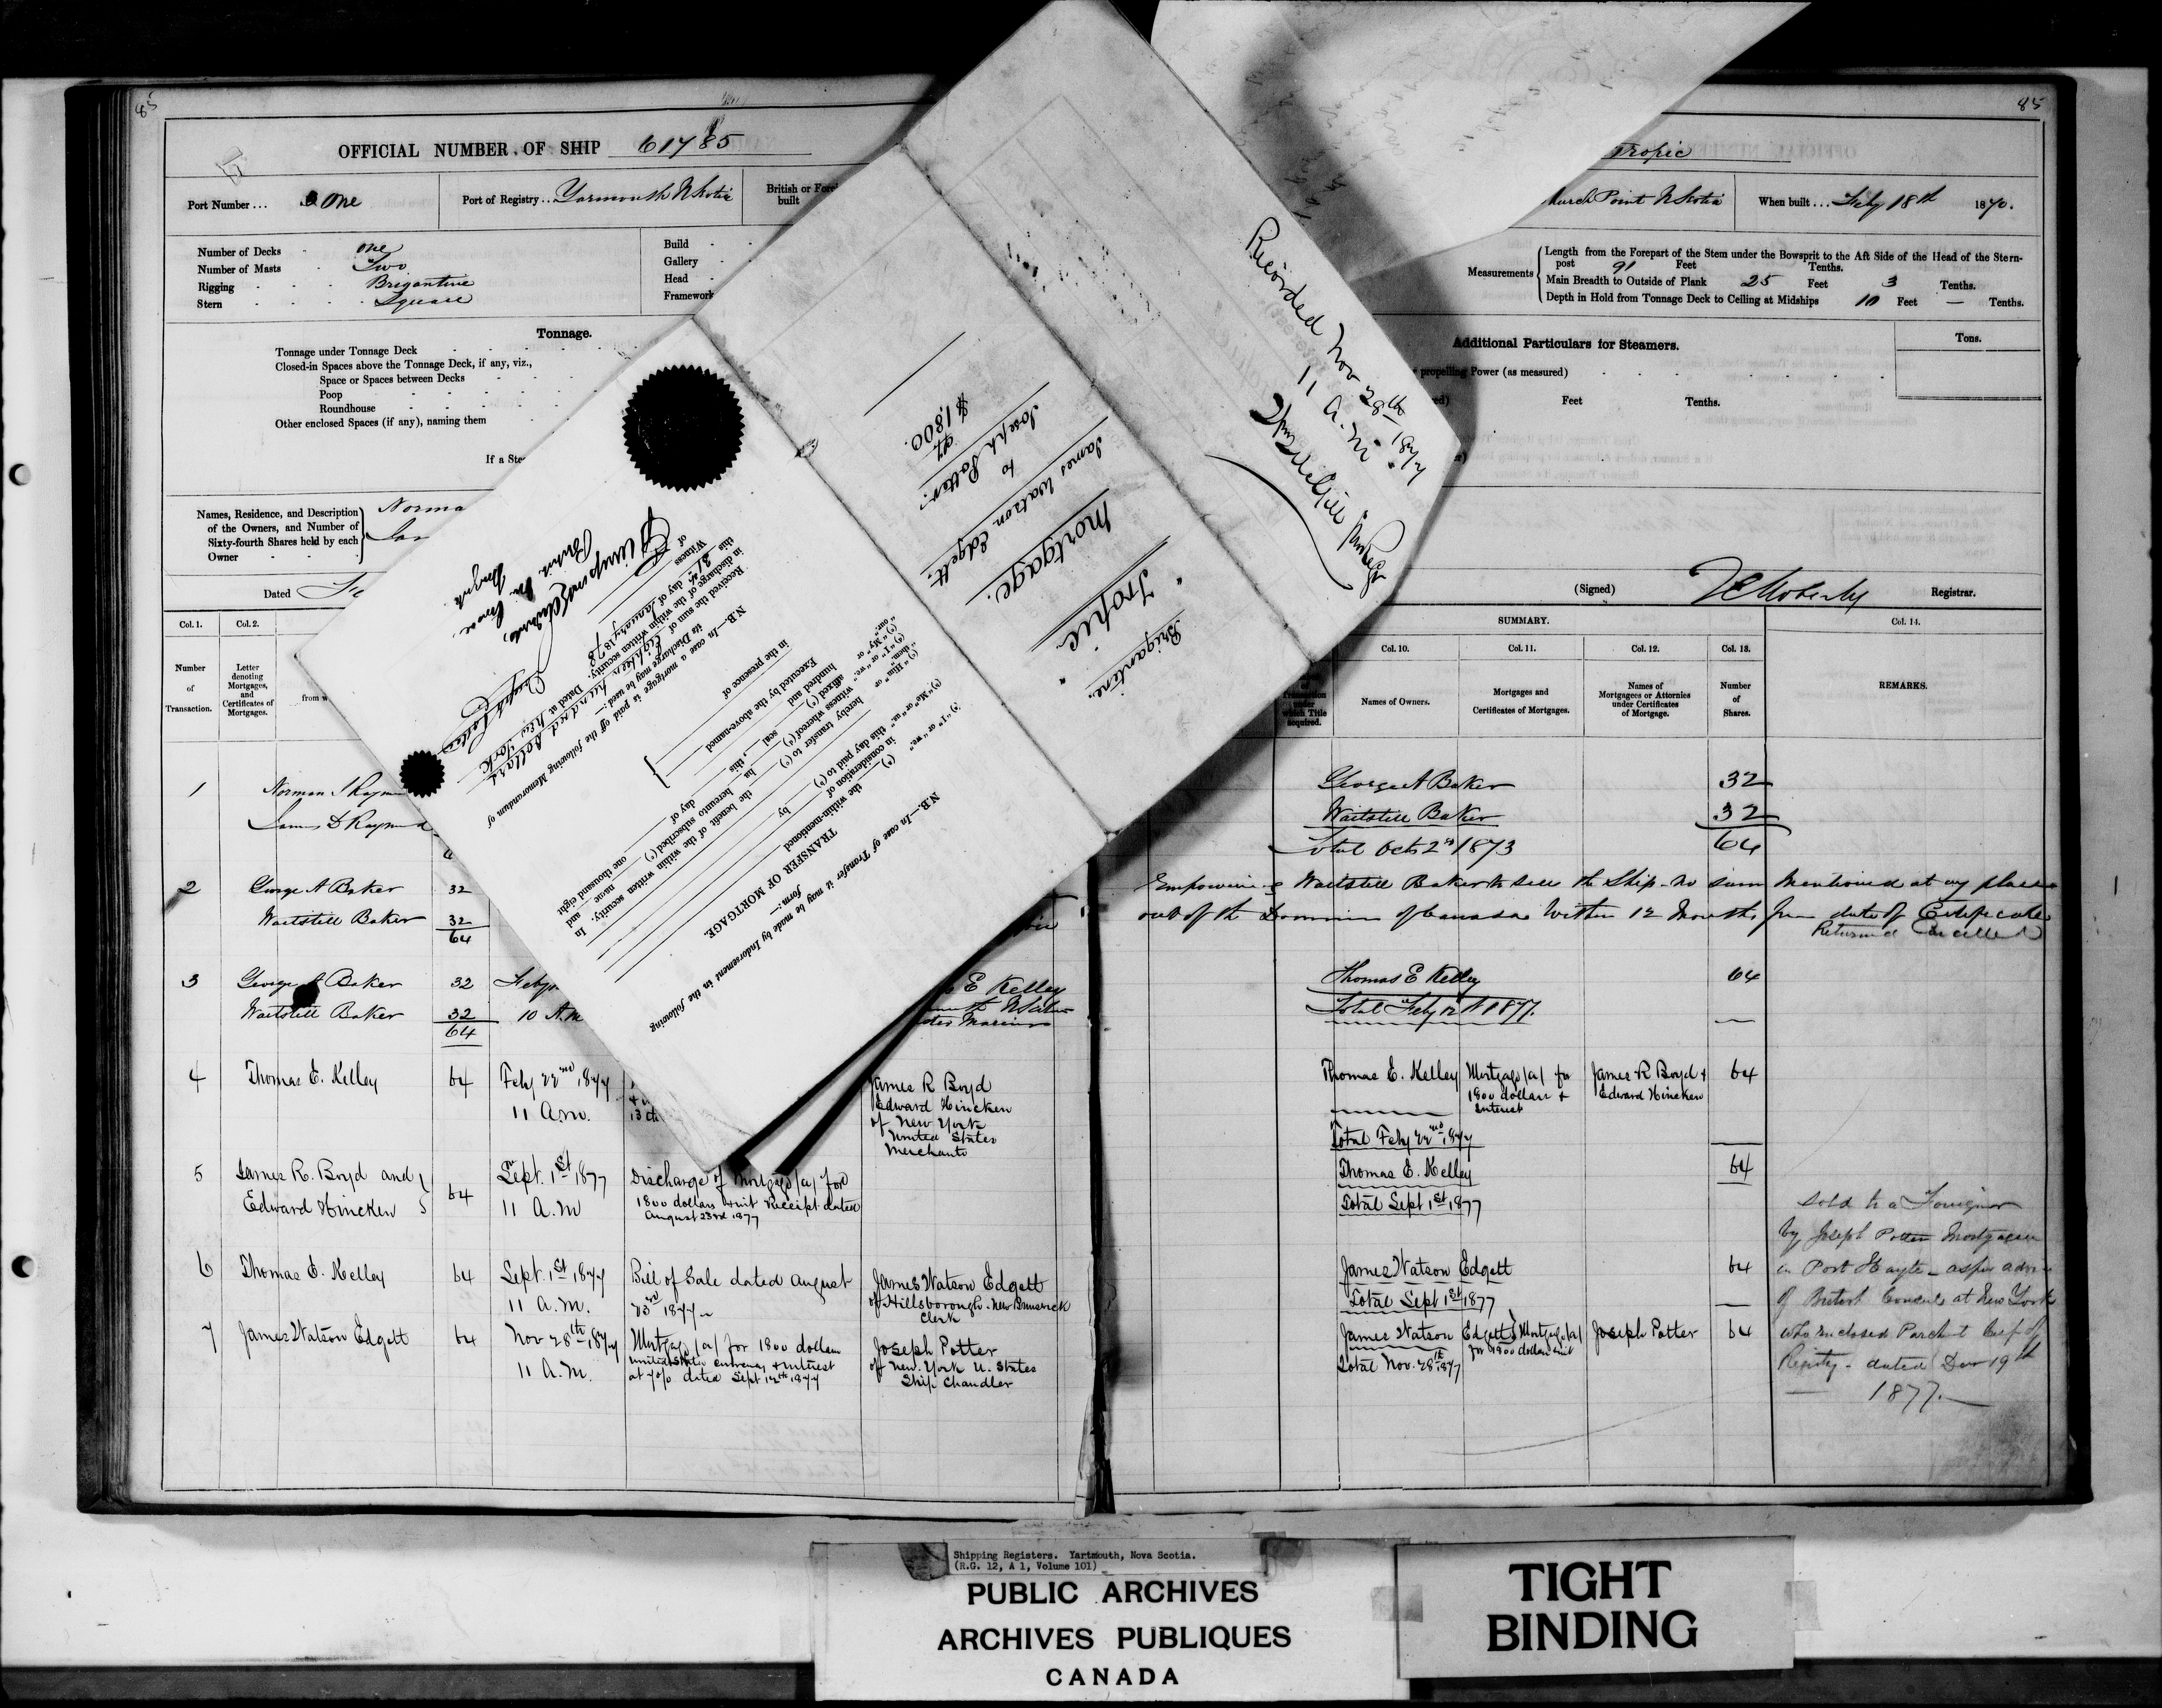 85
85
OFFICIAL NUMBER OF SHIP 61785
Tropic
Port Number... One
Port of Registry.. Yarmouth N Scotia
British or Fore
built
Church Point N Scotia
When built... Feby 18th 1870.
Number of Decks - one
Number of Masts - Two
Rigging - - - Brigantine
Stern - - - Square
Build -
Gallery -
Head -
Framework
Measurements
Length from the Forepart of the Stem under the Bowsprit to the Aft Side of the Head of the Stern-
post 91 Feet Tenths.
Main Breadth to Outside of Plank 25 Feet 3 Tenths.
Depth in Hold from Tonnage Deck to Ceiling at Midships 10 Feet — Tenths.
Tonnage.
Tonnage under Tonnage Deck
Closed-in Spaces above the Tonnage Deck, if any, viz.,
Space or Spaces between Decks
Poop
Roundhouse
Other enclosed Spaces (if any), naming them
If a Ste
Additional Particulars for Steamers.
Tons.
propelling Power (as measured)
Feet Tenths.
Names, Residence, and Description
of the Owners, and Number of
Sixty-fourth Shares held by each
Owner
Norma
Dated
(Signed) Registrar.
Brigantine
"Tropic"
Mortgage.
James Watson Edgett.
to
Joseph Potter.
$1,800.
Recorded Nov 28th 1877
11 a.m.
N.B.—In case a mortgage is paid off the following Memorandum of
its Discharge may be used:—
Received the sum of Eighteen hundred dollars
in discharge of the within written security. Dated at New York
this 21st day of January 1878
Witness
of
Joseph Potter
N.B.—In case of Transfer it may be made by Indorsement in the following
form:—
TRANSFER OF MORTGAGE.
the within-mentioned
in consideration of
this day paid to
by
hereby transfer to
the benefit of the within written security. In
witness whereof
hereunto subscribed name and
affixed seal, this day of one thousand eight
hundred and
Executed by the above-named
in the presence of
Col. 1.
Col. 2.
SUMMARY.
Col. 14.
Col. 10.
Col. 11.
Col. 12.
Col. 13.
Number
of
Transaction.
Letter
denoting
Mortgages,
and
Certificates of
Mortgages.
from w
of
Transaction
under
which Title
acquired.
Names of Owners.
Mortgages and
Certificates of Mortgages.
Names of
Mortgagees or Attornies
under Certificates
of Mortgage.
Number
of
Shares.
REMARKS.
1 Norman
James D Raymond
George A Baker 32
Waitstill Baker 32
Total Oct 2nd 1873 64
2 George A Baker 32
Waitstill Baker 32
64
Empowering Waitstill Baker to sell the Ship - no sum mentioned at any place
out of the Dominion of Canada within 12 months from date of Certificate
Returned Cancelled
3 George A Baker 32
Waitstill Baker 32
64
10 A.M
E Kelley
Thomas E Kelley 64
4 Thomas E. Kelley 64 Feby 22nd 1877
11 A.M.
James R Boyd
Edward Hincken
of New York
United States
Merchants
Thomas E. Kelley Mortgage (a) for
1800 dollars &
Interest
James R Boyd &
Edward Hincken 64
Total Feby 22nd 1877
5 James R. Boyd and
Edward Hincken 64
Sept. 1st 1877
11 A.M
Discharge of Mortgage (a) for
1800 dollars & int Receipt dated
August 23rd 1877
Thomas E. Kelley 64
Total Sept 1st 1877
6 Thomas E. Kelley 64 Sept. 1st 1877
11 A.M.
Bill of Sale dated August
23rd 1877
James Watson Edgett
of Hillsborough. New Brunswick
Clerk
James Watson Edgett 64
Total Sept 1st 1877
7 James Watson Edgett 64 Nov 28th 1877
11 A.M.
Mortgage (a) for 1800 dollars
United States currency & interest
at 7 0/0 dated Sept 12th 1877
Joseph Potter
of New York U. States
Ship Chandler
James Watson Edgett Mortgage (a)
for 1800 dollars & int
Joseph Potter 64
Total Nov. 28th 1877
Sold to a Foreigner
by Joseph Potter Mortgagee
in Port Hayte - as per advice
of British Consul at New York
who enclosed Parchmt Cert of
Registry - dated Decr 19th
1877.
Shipping Registers. Yartmouth, Nova Scotia.
(R.G. 12, A 1, Volume 101)
PUBLIC ARCHIVES
ARCHIVES PUBLIQUES
CANADA
TIGHT
BINDING